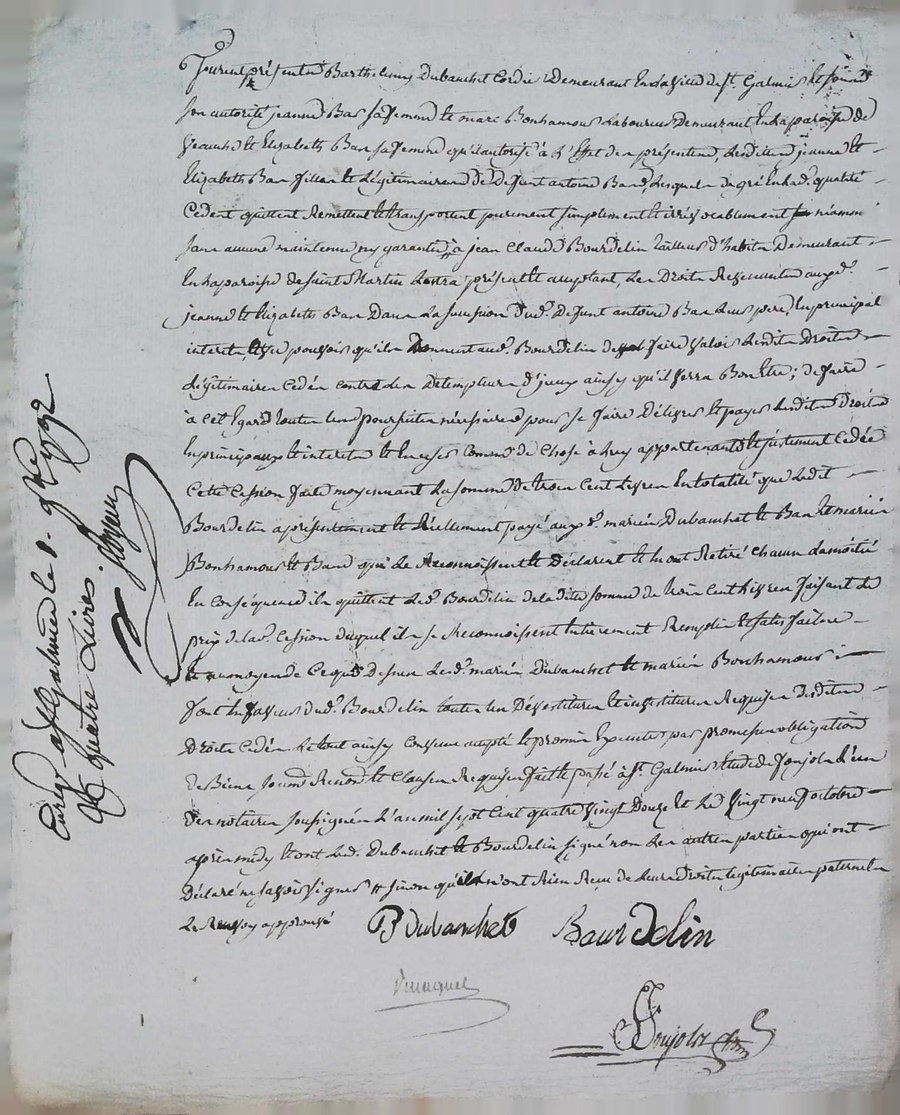 furent présents Barthelemy Dubanchet Cordier Demeurant En la ville de st. Galmier et sous
son autorité jeanne Bas sa femme et marc Bonhamour Laboureur Demeurant En la paroisse de
Veauche et Elizabeth Bas sa femme qu'il autorise à L'Effet des présentes, Lesdites jeanne et
Elizabeth Bas filles et Légitimaires de Defunt antoine Bas, Lesquels de gré En lad. qualité
Cedent quittent Remettent et transportent purement simplement et irrévocablement néanmoins
sans aucune maintenue ny garantie à jean Claude Bourdelin tailleur d'habits Demeurant
En la paroisse de saint Martin Lestra présent et acceptant, Les Droits Revenants auxd.
jeanne et Elizabeth Bas Dans La succession dud. Defunt antoine Bas Leur pere, En principal
interets, pouvoir qu'ils Donnent aud. Bourdelin de faire valoir Lesdits Droits
Légitimaires Cédés contre Les Détempteurs d'jceux ainsy qu'il verra Bon Etre; de faire
à cet Egard toutes Les poursuites nécéssaires pour se faire Délivrer et payer Lesdits Droits
En principaux et interets et En user Comme de Chose à Luy appartenante et justement Cédée
Cette Cession faite moyennant La somme de trois Cent Livres En totalité que Ledit
Bourdelin a présentement et Réellement payé auxd. mariés Dubanchet et Bas et mariés
Bonhamour et Bas qui Le Reconnoissent et Déclarent et L'ont Retiré Chacun La moitié
En conséquence ils quittent Led. Bourdelin de ladite somme de trois Cent Livres faisant Le
prix de lad. Cession duquel ils se Reconnoissent Entierement Remplis et satisfaits
et au moyen de Ce que Dessus Lesd. mariés Dubanchet et mariés Bonhamour
font En faveur dud. Bourdelin toutes Les Dévestitures et investitures Requises Desdits
Droits Cédés Le tout ainsy Convenu accepté et promis Executer par promesses obligation
de Biens soumis Renond. et Clauses Requises fait et passé à st. Galmier Etude de fonjols L'un
des notaires soussignés L'an mil sept Cent quatre vingt Douze et Le vingt neuf octobre
après midy Et ont Led. Dubanchet et Bourdelin signé non Les autres parties qui ont
Déclaré ne savoir signer # sinon qu'ils n'ont Rien Reçu de Leurs Droits légitimaires paternels
Le Renvoy approuvé
B Dubanchet Bourdelin
fonjols
Enreg. a st Galmier le 8. 9bre 1792
quatre Livres.